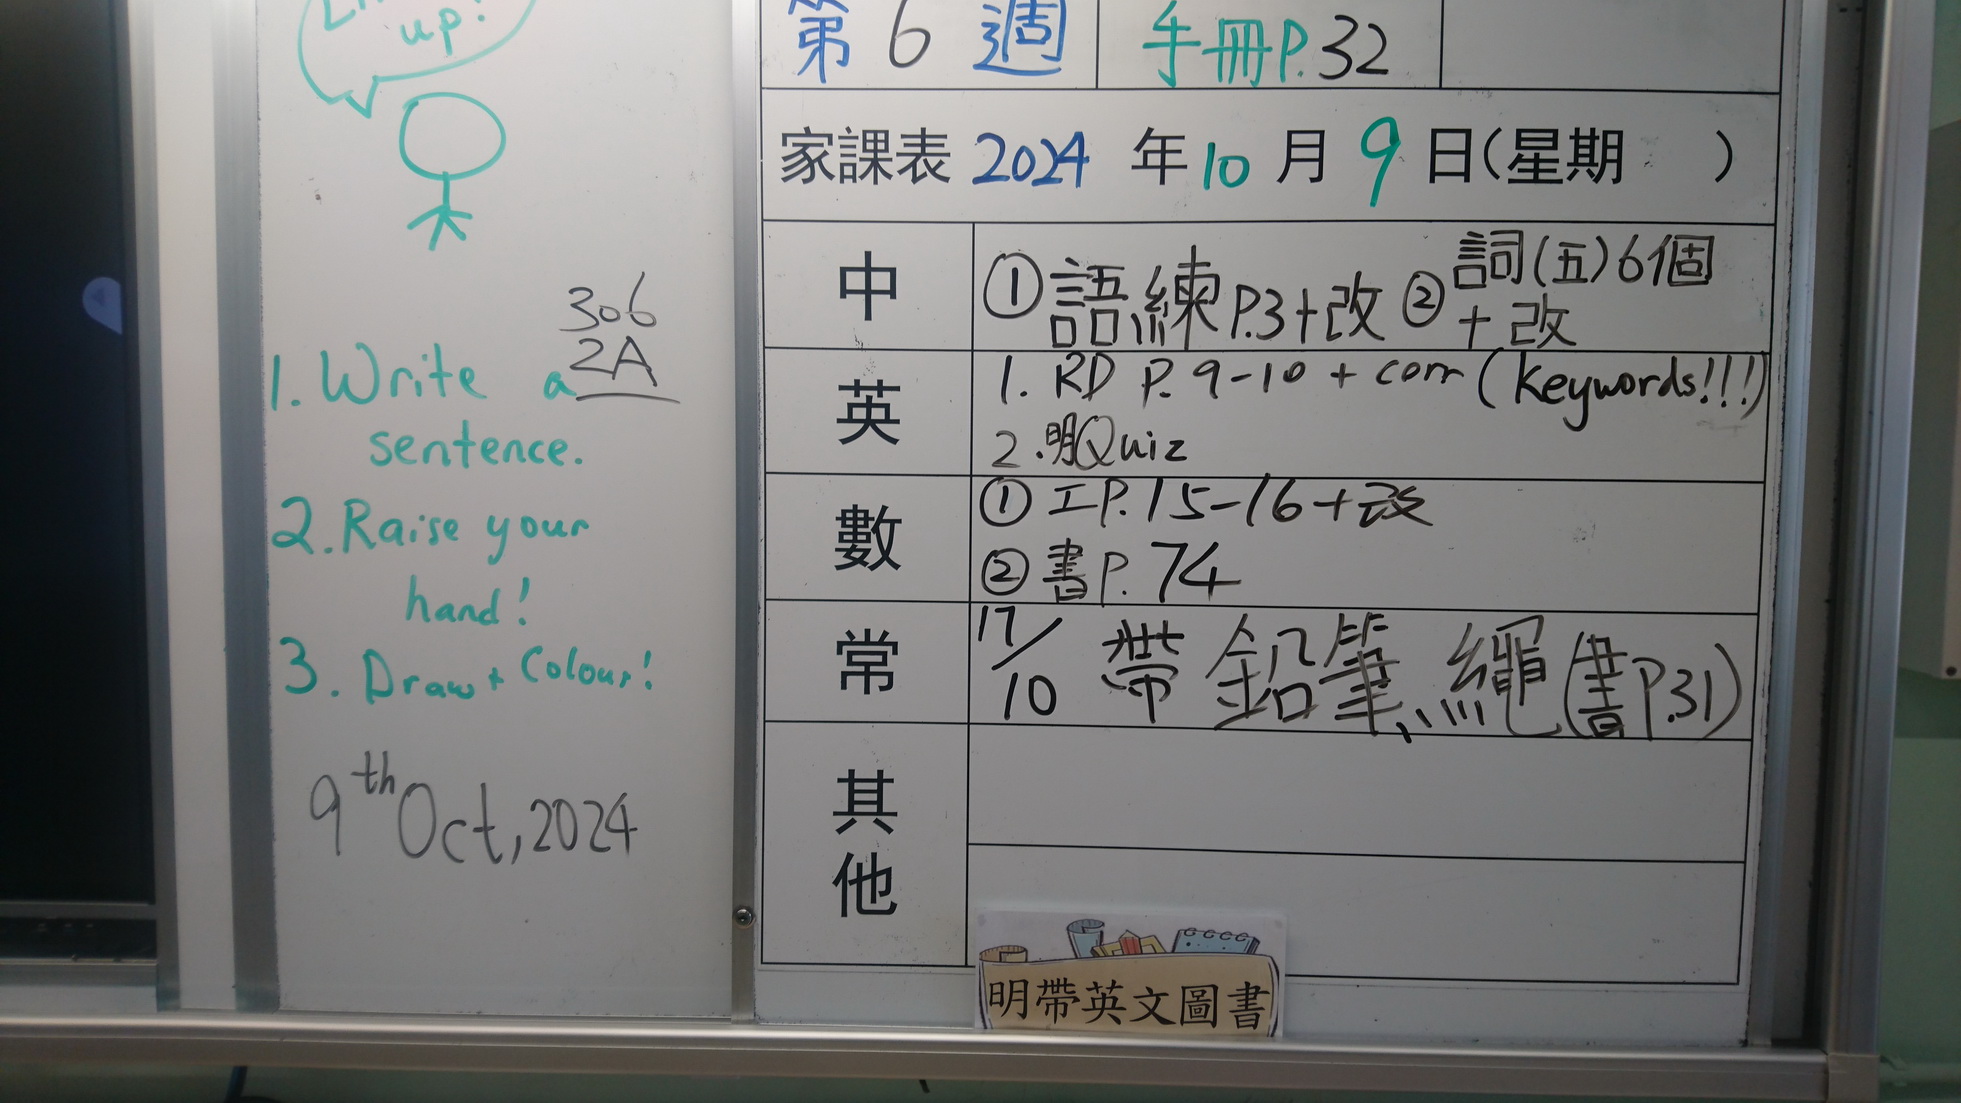 up!
306
2A
1. Write a
sentence.
2. Raise your
hand!
3. Draw + Colour!
9th Oct, 2024
第 6 週
手冊P.32
家課表 2024 年 10 月 9 日(星期 )
中
①語練P.3+改 ②詞(五)6個
+改
英
1. RD P. 9-10 + corr (keywords!!!)
2.明Quiz
數
① 工P.15-16+改
② 書P.74
常
17/10 帶鉛筆、繩(書P.31)
其他
明帶英文圖書